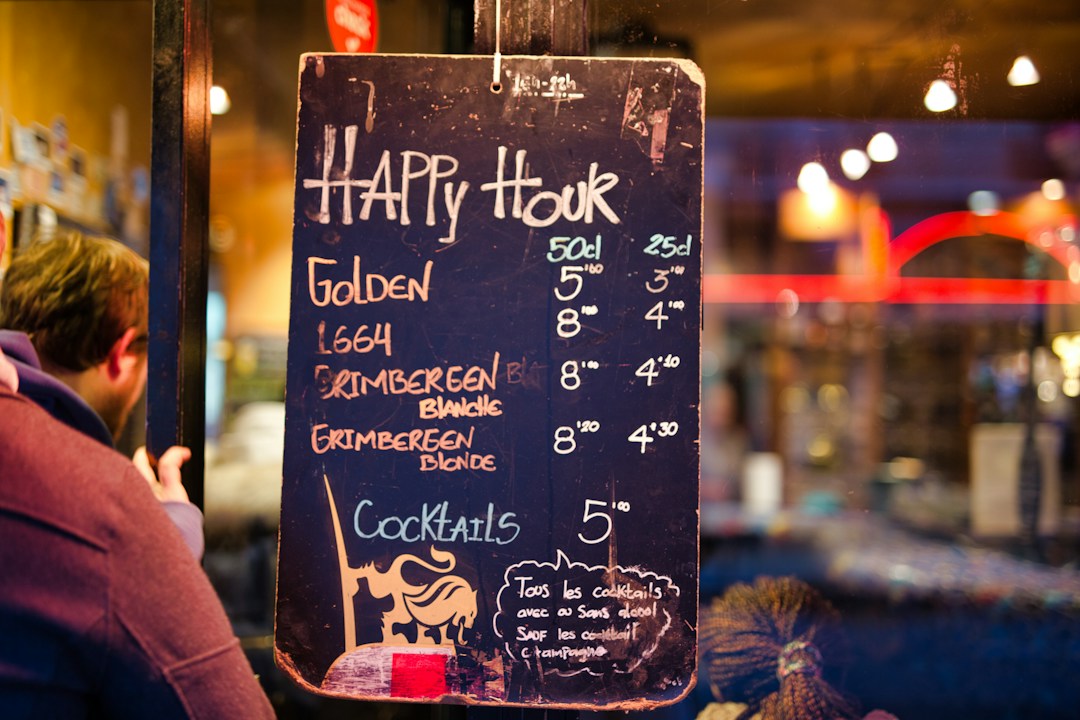 Happy Hour
50cl 25cl
Golden 5'00 3'00
1664 8'00 4'00
GRIMBERGEN 8'00 4'10
BLANCHE
GRIMBERGEN 8'20 4'30
BLONDE
Cocktails 5'00
Tous les cocktails
avec ou sans alcool
Sauf les cocktail
Champagne